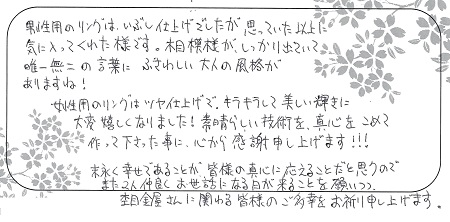 男性用のリングは、いぶし仕上げでしたが思っていた以上に
気に入ってくれた様です。木目模様が、しっかり出ていて
唯一無二の言葉に ふさわしい大人の風格が
ありますね！
女性用のリングはツヤ仕上げで、キラキラして美しい輝きに
大変嬉しくなりました！素晴らしい技術を、真心をこめて
作って下さった事に、心から感謝申し上げます！！！
末永く幸せであることが皆様の真心に応えることだと思うので
また二人仲良くお世話になる日が来ることを願いつつ、
杢目金屋さんに関わる皆様のご多幸をお祈り申し上げます。